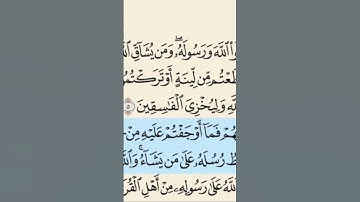 وا۟ ٱللَّهَ وَرَسُولَهُۥۖ وَمَن يُشَآقِّ ٱللَّ
طَعْتُم مِّن لِّينَةٍ أَوْ تَرَكْتُمُو
للَّهِ وَلِيُخْزِيَ ٱلْفَٰسِقِينَ ٥
هُمْ فَمَآ أَوْجَفْتُمْ عَلَيْهِ مِنْ
طُ رُسُلَهُۥ عَلَىٰ مَن يَشَآءُۚ وَٱللَّ
للَّهُ عَلَىٰ رَسُولِهِۦ مِنْ أَهْلِ ٱلْقُرَ